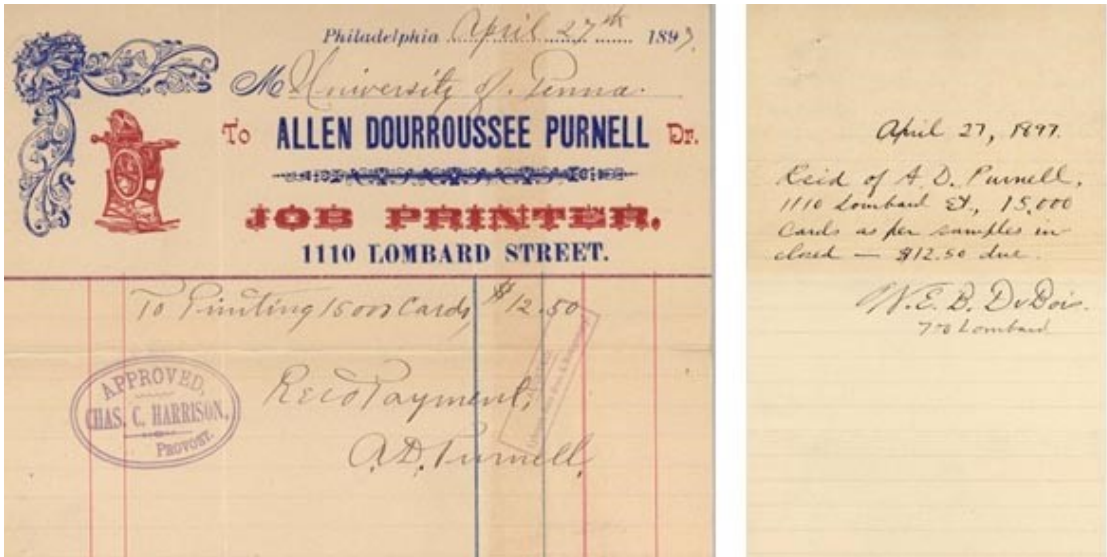 Philadelphia April 27th 1897
M University of Penna.
To ALLEN DOURROUSSEE PURNELL Dr.
JOB PRINTER.
1110 LOMBARD STREET.
To Printing 15000 Cards, $12.50
APPROVED,
CHAS. C. HARRISON,
PROVOST.
Recd Payment,
A.D. Purnell
April 27, 1897.
Rcid of A. D. Purnell,
1110 Lombard St., 15,000
cards as per samples in-
closed — $12.50 due.
W. E. B. DuBois.
700 Lombard